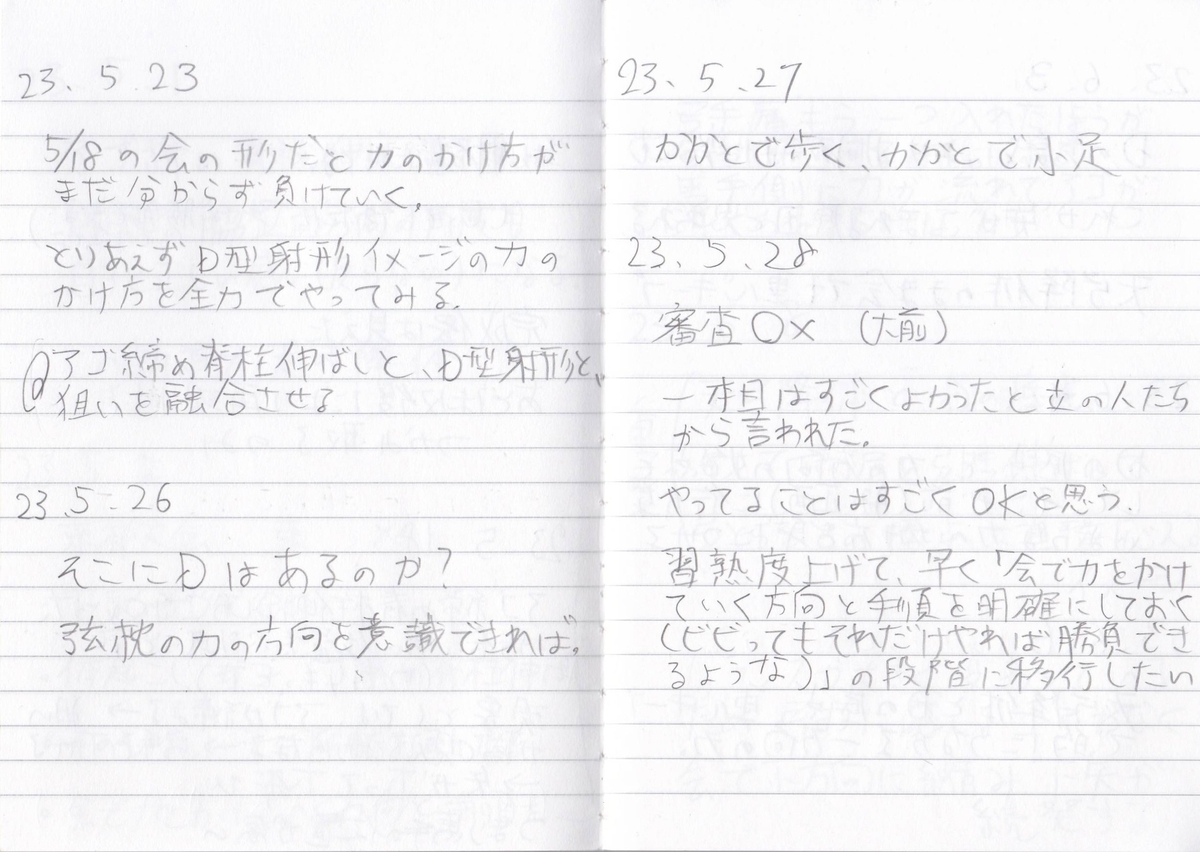 23.5.23
5/18の会の形だと力のかけ方が
まだ分からず負けていく。
とりあえずD型射形イメージの力の
かけ方を全力でやってみる。
アゴ締め脊柱伸ばしと、D型射形と、
狙いを融合させる
23.5.26
そこにDはあるのか?
弦枕の力の方向を意識できれば。
23.5.27
かかとで歩く、かかとで小足
23.5.28
審査○× (大前)
一本目はすごくよかったと立の人たち
から言われた。
やってることはすごくOKと思う.
習熟度上げて、早く「会で力をかけ
ていく方向と手順を明確にしておく
(ビビってもそれだけやれば勝負でき
るような)」の段階に移行したい